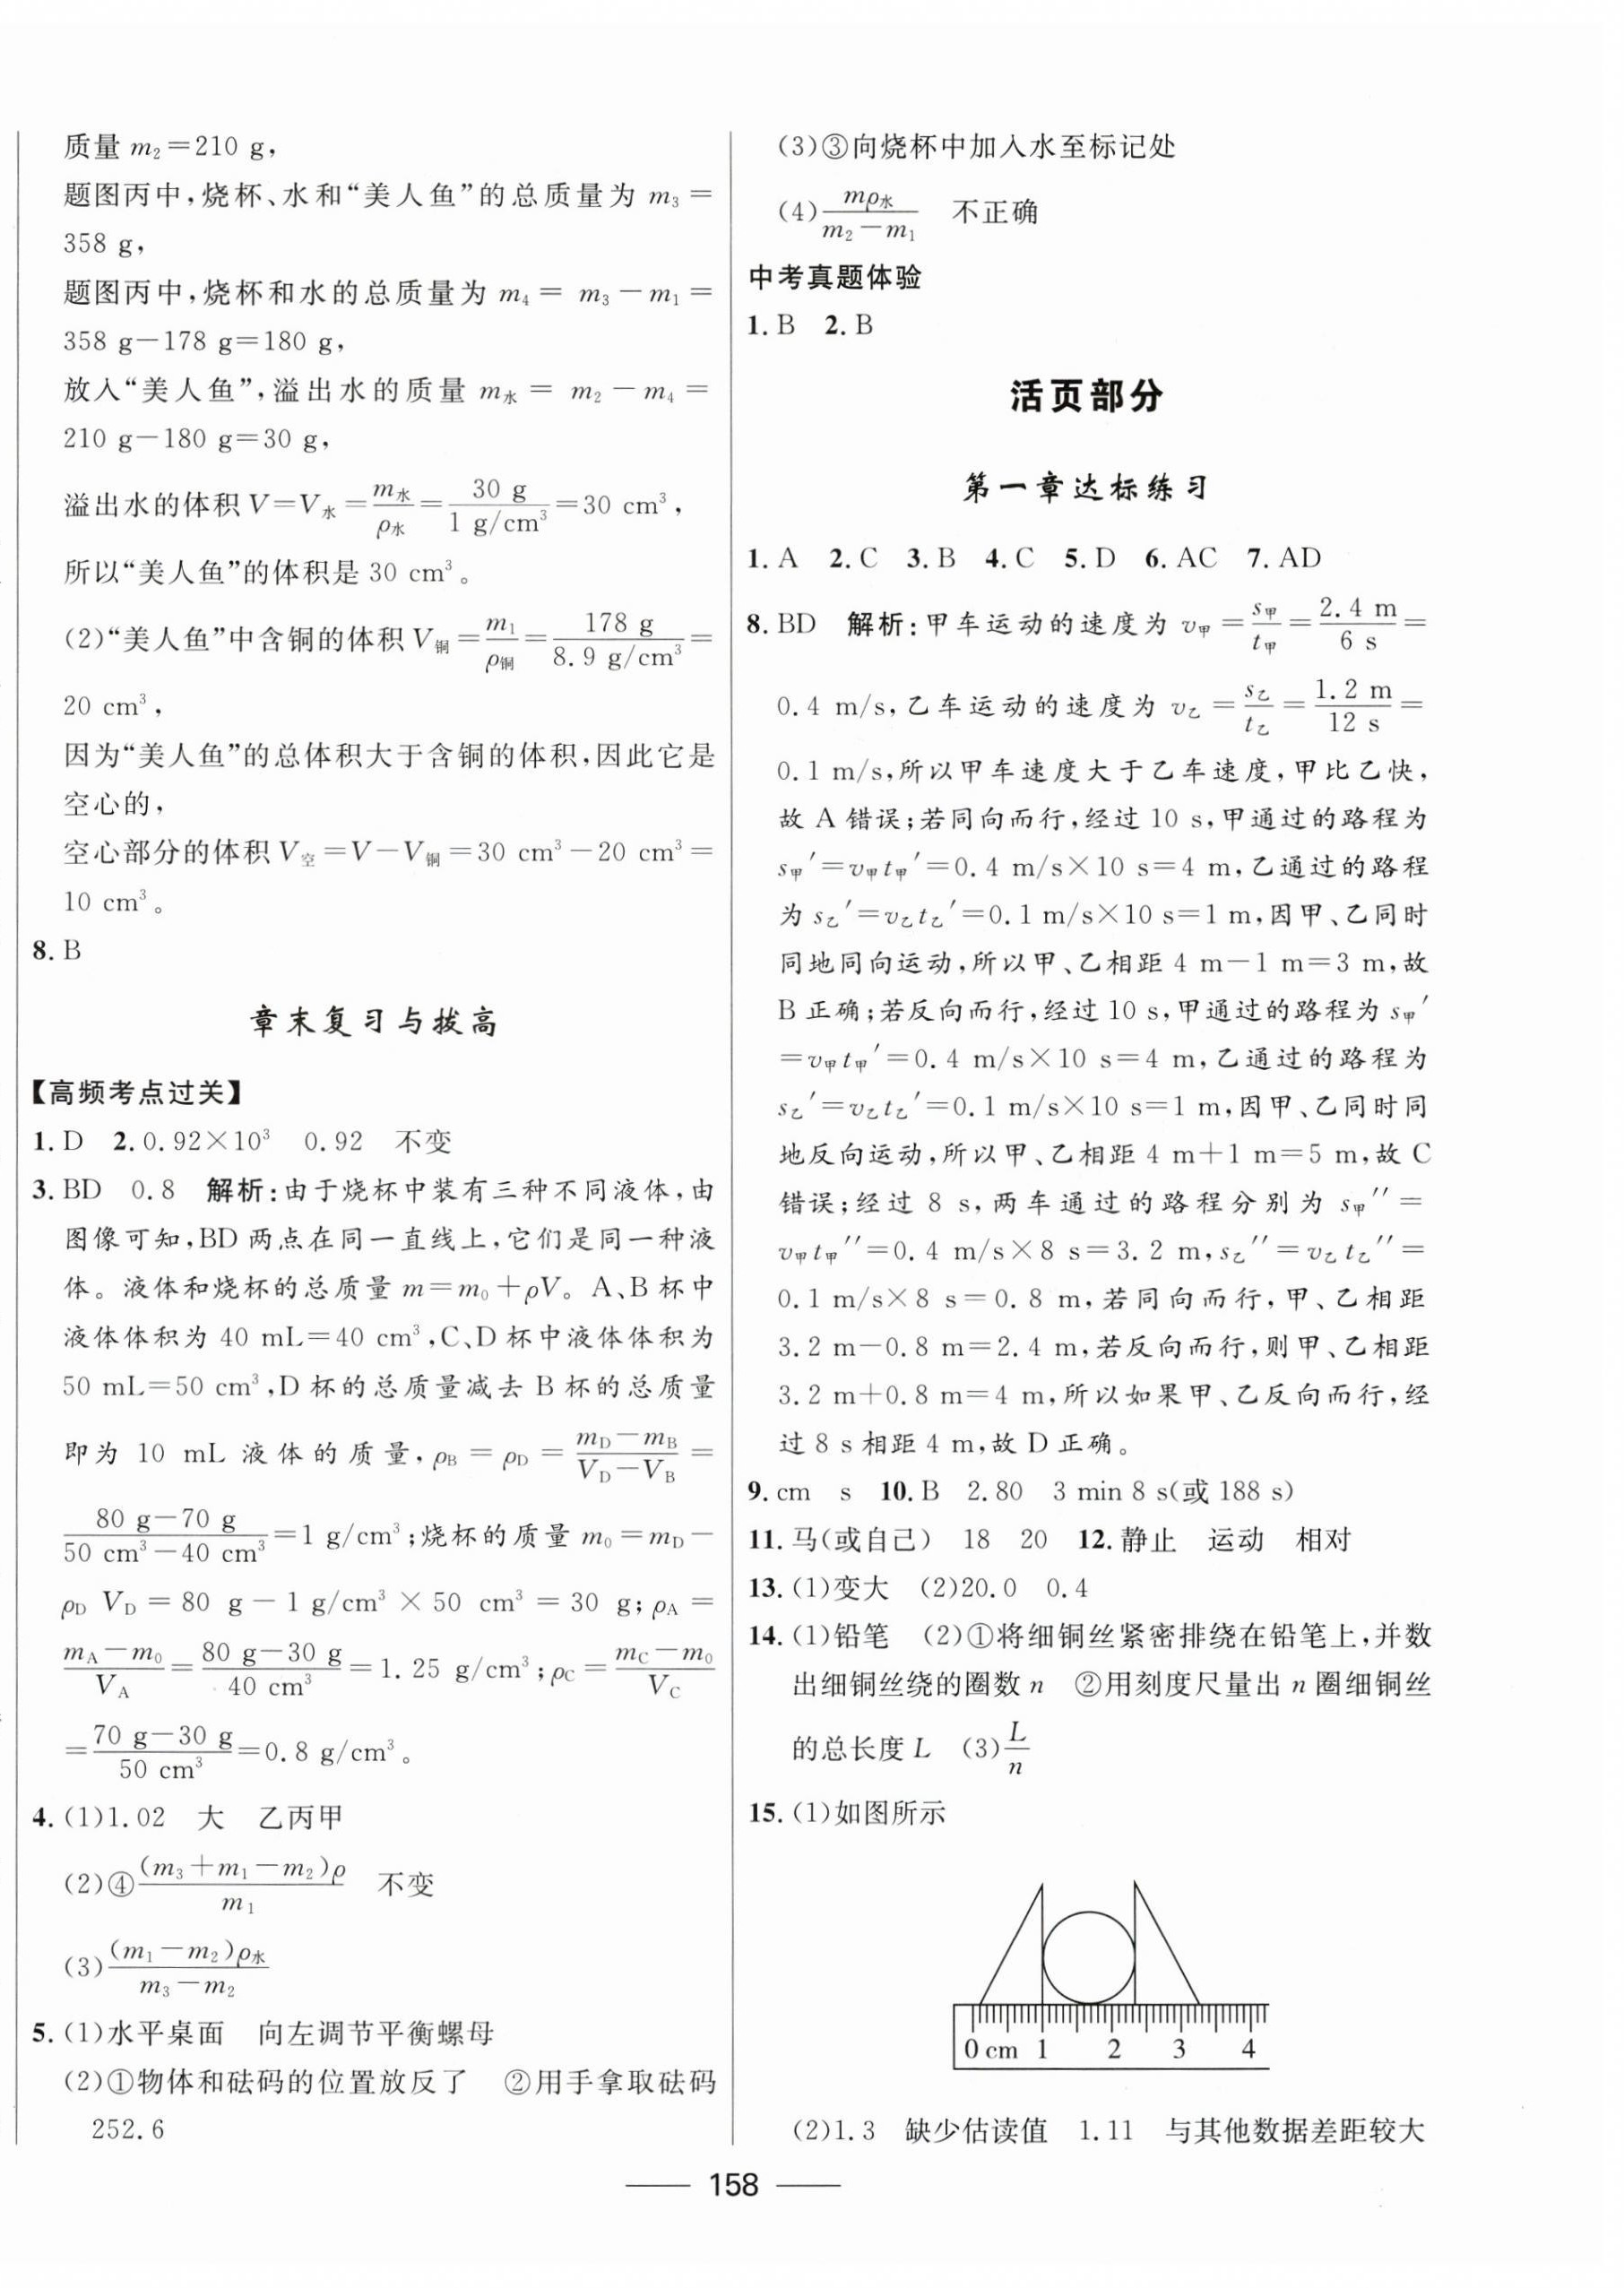 质量 m₂=210 g,
题图丙中,烧杯、水和“美人鱼”的总质量为 m₃=
358 g,
题图丙中,烧杯和水的总质量为 m₄= m₃-m₁=
358 g-178 g=180 g,
放入“美人鱼”,溢出水的质量 m水= m₂-m₄=
210 g-180 g=30 g,
溢出水的体积 V=V水=m水/ρ水=30 g/1 g/cm³=30 cm³,
所以“美人鱼”的体积是 30 cm³。
(2)“美人鱼”中含铜的体积 V铜=m₁/ρ铜=178 g/8.9 g/cm³=
20 cm³,
因为“美人鱼”的总体积大于含铜的体积,因此它是
空心的,
空心部分的体积 V空=V-V铜=30 cm³-20 cm³=
10 cm³。
8. B
章末复习与拔高
【高频考点过关】
1. D 2. 0.92×10³ 0.92 不变
3. BD 0.8 解析:由于烧杯中装有三种不同液体,由
图像可知,BD 两点在同一直线上,它们是同一种液
体。液体和烧杯的总质量 m=m₀+ρV。A、B 杯中
液体体积为 40 mL=40 cm³,C、D 杯中液体体积为
50 mL=50 cm³,D 杯的总质量减去 B 杯的总质量
即为 10 mL 液体的质量,ρB=ρD=(mD-mB)/(VD-VB)=
(80 g-70 g)/(50 cm³-40 cm³)=1 g/cm³;烧杯的质量 m₀=mD-
ρD VD=80 g-1 g/cm³×50 cm³=30 g;ρA=
(mA-m₀)/VA=(80 g-30 g)/40 cm³=1.25 g/cm³;ρC=(mC-m₀)/VC
=(70 g-30 g)/50 cm³=0.8 g/cm³。
4. (1)1.02 大 乙丙甲
(2)④(m₃+m₁-m₂)ρ/m₁ 不变
(3)(m₁-m₂)ρ水/(m₃-m₂)
5. (1)水平桌面 向左调节平衡螺母
(2)①物体和砝码的位置放反了 ②用手拿取砝码
252.6
(3)③向烧杯中加入水至标记处
(4)mρ水/(m₂-m₁) 不正确
中考真题体验
1. B 2. B
活页部分
第一章达标练习
1. A 2. C 3. B 4. C 5. D 6. AC 7. AD
8. BD 解析:甲车运动的速度为 v甲=s甲/t甲=2.4 m/6 s=
0.4 m/s,乙车运动的速度为 v乙=s乙/t乙=1.2 m/12 s=
0.1 m/s,所以甲车速度大于乙车速度,甲比乙快,
故 A 错误;若同向而行,经过 10 s,甲通过的路程为
s甲′=v甲t甲′=0.4 m/s×10 s=4 m,乙通过的路程
为 s乙′=v乙t乙′=0.1 m/s×10 s=1 m,因甲、乙同时
同地同向运动,所以甲、乙相距 4 m-1 m=3 m,故
B 正确;若反向而行,经过 10 s,甲通过的路程为 s甲′
=v甲t甲′=0.4 m/s×10 s=4 m,乙通过的路程为
s乙′=v乙t乙′=0.1 m/s×10 s=1 m,因甲、乙同时同
地反向运动,所以甲、乙相距 4 m+1 m=5 m,故 C
错误;经过 8 s,两车通过的路程分别为 s甲″=
v甲t甲″=0.4 m/s×8 s=3.2 m,s乙″=v乙t乙″=
0.1 m/s×8 s=0.8 m,若同向而行,甲、乙相距
3.2 m-0.8 m=2.4 m,若反向而行,则甲、乙相距
3.2 m+0.8 m=4 m,所以如果甲、乙反向而行,经
过 8 s 相距 4 m,故 D 正确。
9. cm s 10. B 2.80 3 min 8 s(或 188 s)
11. 马(或自己) 18 20 12. 静止 运动 相对
13. (1)变大 (2)20.0 0.4
14. (1)铅笔 (2)①将细铜丝紧密排绕在铅笔上,并数
出细铜丝绕的圈数 n ②用刻度尺量出 n 圈细铜丝
的总长度 L (3)L/n
15. (1)如图所示
0 cm 1 2 3 4
(2)1.3 缺少估读值 1.11 与其他数据差距较大
158